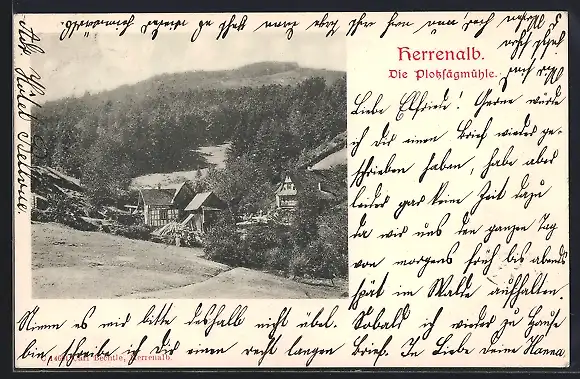 Herrenalb.
Die Plotzsägmühle.
Liebe Elfriede! Gerne würde
ich Dir einen Brief wieder ge-
schrieben haben, habe aber
leider gar keine Zeit dazu
da wir uns den ganzen Tag
von morgens früh bis abends
spät im Walde aufhalten.
Nimm es mir bitte deshalb nicht übel. Sobald ich wieder zu Hause
bin, schreibe ich Dir einen recht langen Brief. In Liebe Deine Hanna
Carl Bechtle, Herrenalb.
Abs. Hôtel Bellevue